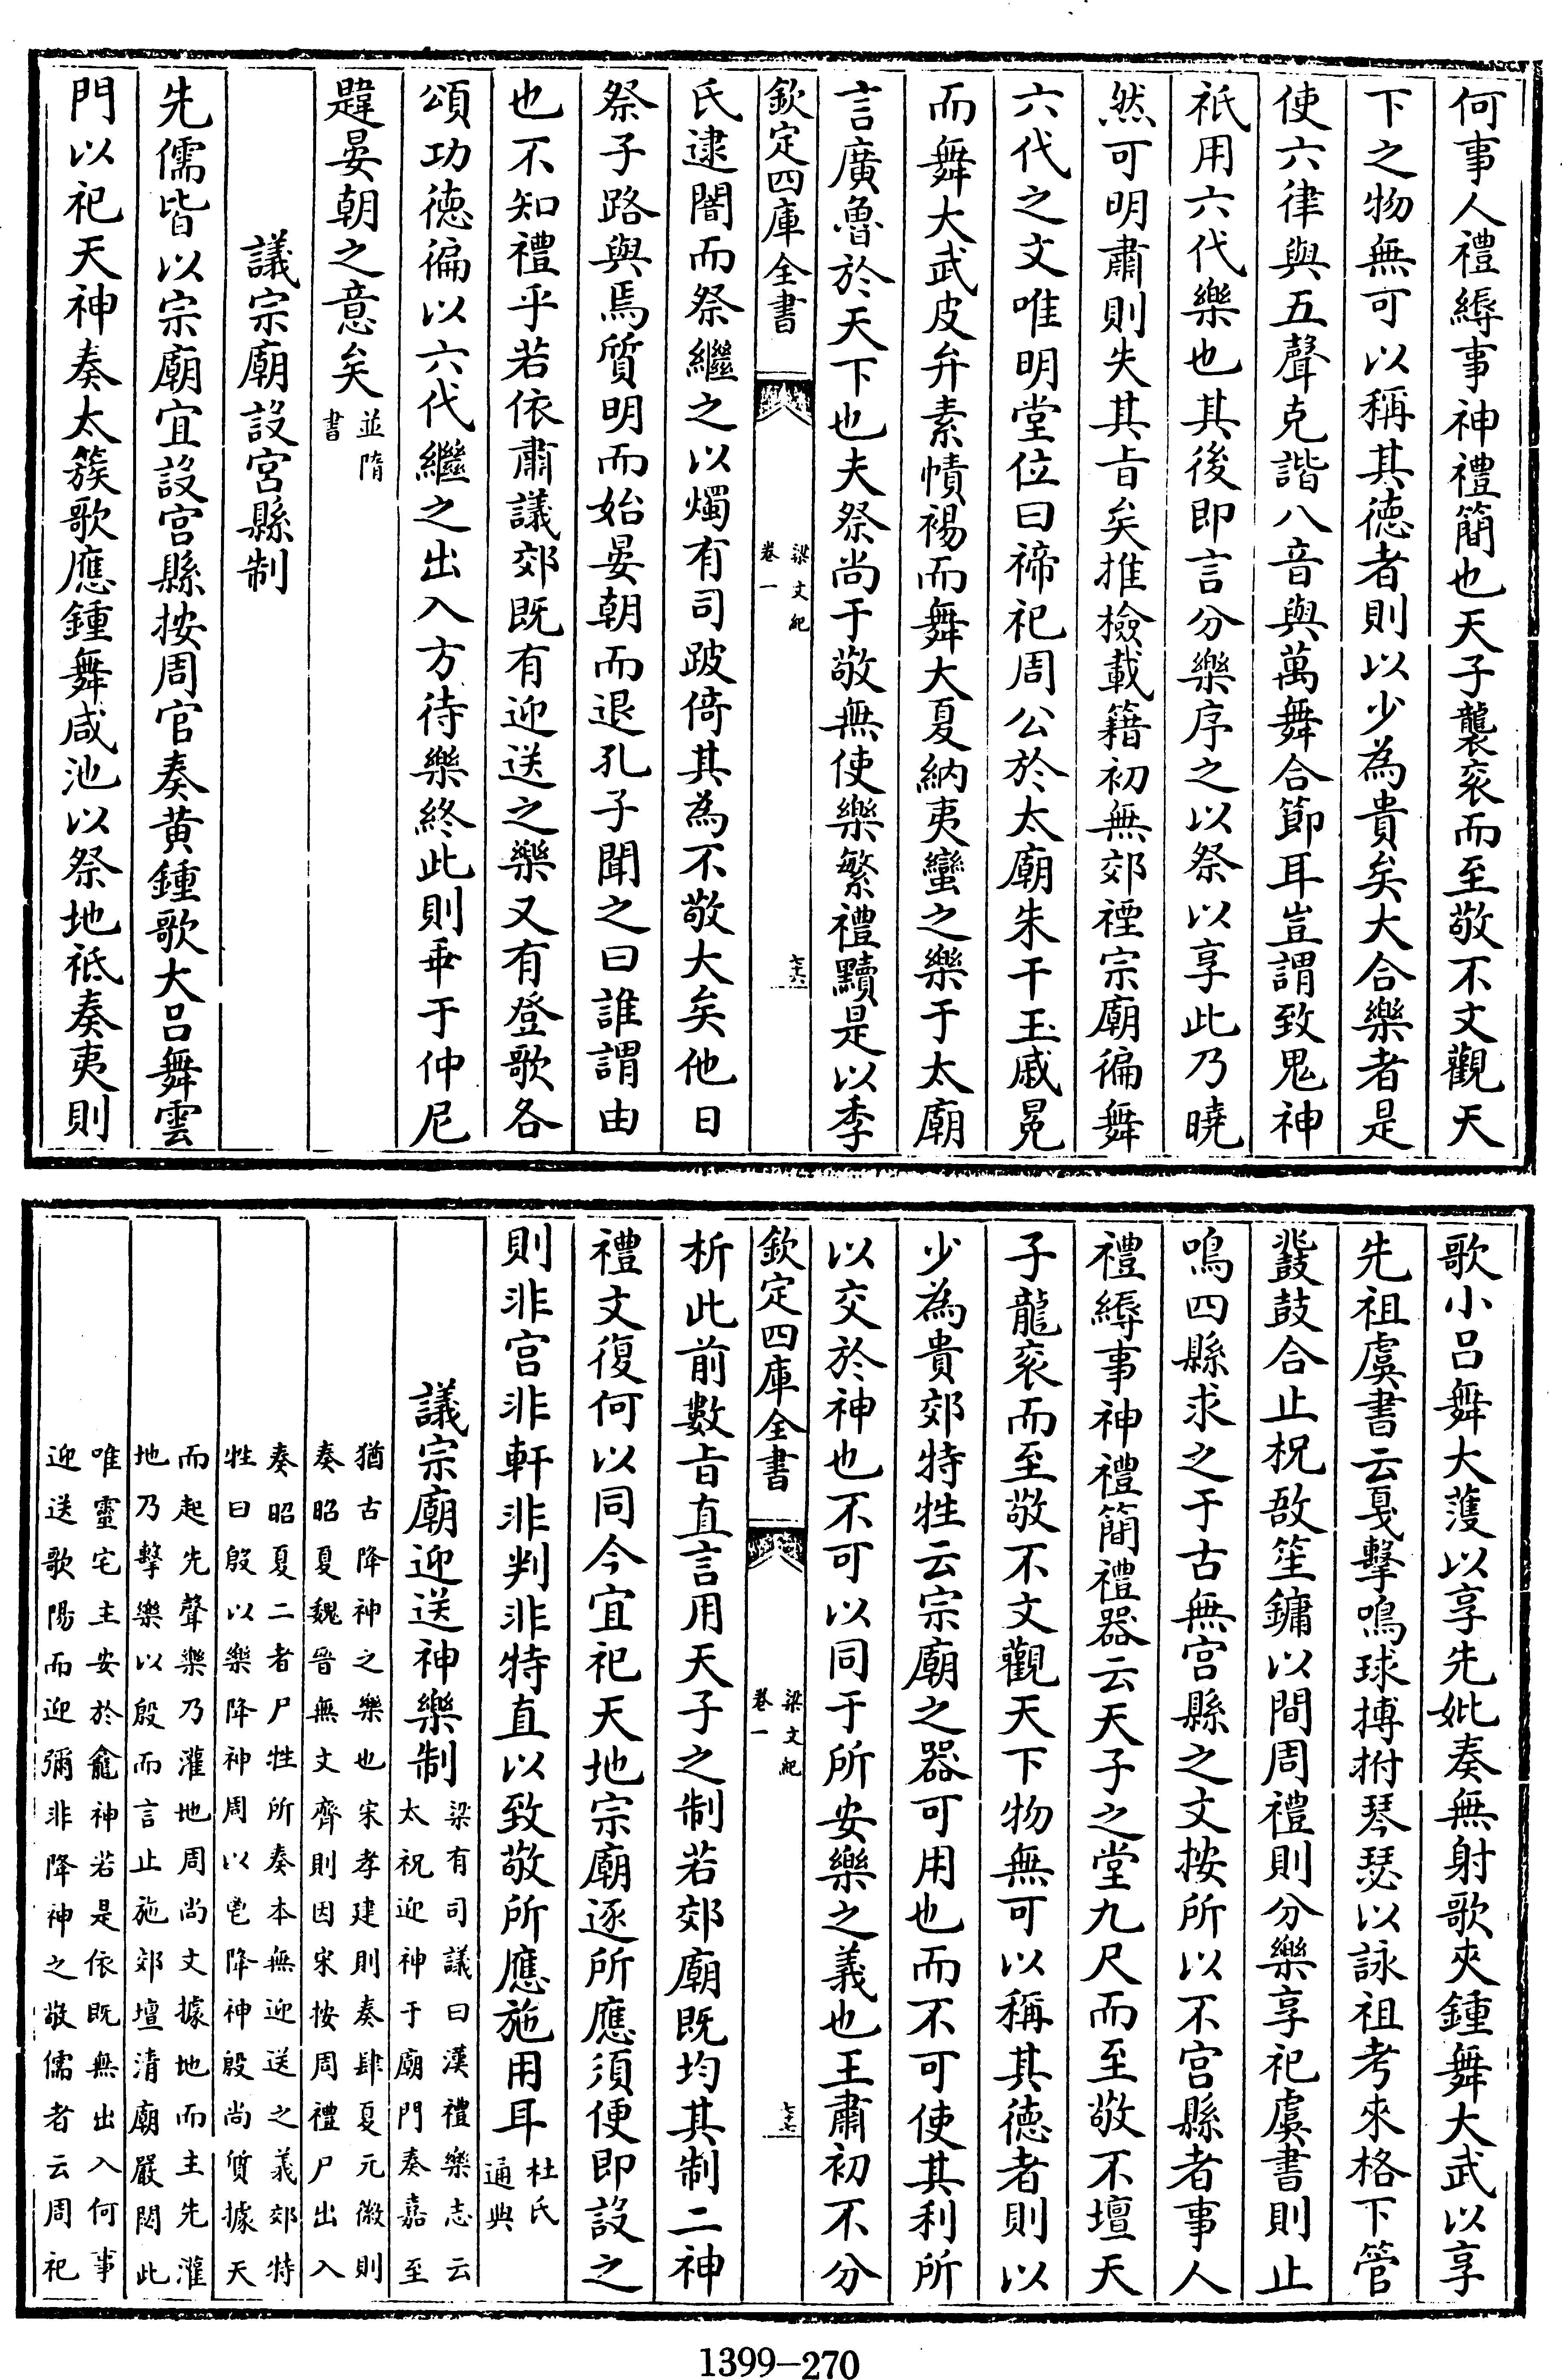 何事人禮縟事神禮簡也天子襲衮而至敬不文觀天
下之物無可以稱其徳者則以少為貴矣大合樂者是
使六律與五聲克諧八音與萬舞合節耳豈謂致鬼神
祇用六代樂也其後即言分樂序之以祭以享此乃曉
然可明肅則失其㫖矣推檢載籍初無郊禋宗廟徧舞
六代之文唯明堂位曰禘祀周公於太廟朱干玉戚冕
而舞大武皮弁素幘裼而舞大夏納夷蠻之樂于太廟
言廣魯於天下也夫祭尚于敬無使樂繁禮黷是以季
欽定四庫全書
梁文紀
卷一
七十六
氏逮闇而祭繼之以燭有司跛倚其為不敬大矣他日
祭子路與焉質明而始晏朝而退孔子聞之曰誰謂由
也不知禮乎若依肅議郊既有迎送之樂又有登歌各
頌功徳徧以六代繼之出入方待樂終此則乖于仲尼
韙晏朝之意矣並隋
書
議宗廟設宮縣制
先儒皆以宗廟宜設宮縣按周官奏黄鍾歌大吕舞雲
門以祀天神奏太簇歌應鍾舞咸池以祭地祗奏夷則
歌小吕舞大䕶以享先妣奏無射歌夾鍾舞大武以享
先祖虞書云戛擊鳴球搏拊琴瑟以詠祖考來格下管
鼗鼓合止柷敔笙鏞以間周禮則分樂享祀虞書則止
鳴四縣求之于古無宫縣之文按所以不宫縣者事人
禮縟事神禮簡禮器云天子之堂九尺而至敬不壇天
子龍衮而至敬不文觀天下物無可以稱其徳者則以
少為貴郊特牲云宗廟之器可用也而不可使其利所
以交於神也不可以同于所安樂之義也王肅初不分
欽定四庫全書
梁文紀
卷一
七十七
析此前數㫖直言用天子之制若郊廟既均其制二神
禮文復何以同今宜祀天地宗廟逐所應須便即設之
則非宫非軒非判非特直以致敬所應施用耳杜氏
通典
議宗廟迎送神樂制梁有司議曰漢禮樂志云
太祝迎神于廟門奏嘉至
猶古降神之樂也宋孝建則奏肆夏元徽則
奏昭夏魏晉無文齊則因宋按周禮尸出入
奏昭夏二者尸牲所奏本無迎送之義郊特
牲曰殷以樂降神周以鬯降神殷尚質據天
而起先聲樂乃灌地周尚文據地而主先灌
地乃擊樂以殷而言止施郊壇清廟嚴閟此
唯靈宅主安於龕神若是依既無出入何事
迎送歌陽而迎彌非降神之敬儒者云周祀
1399—270